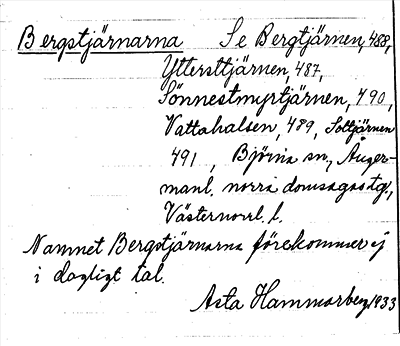 Bergstjärnarna Se Bergtjärnen, 488,
Yttersttjärnen, 487,
Sönnestmyrtjärnen, 490,
Vattahalsen, 489, Soltjärnen
491, Björna sn, Ånger-
manl. norra domsagas tgl,
Västernorrl. l.
Namnet Bergstjärnarna förekommer ej
i dagligt tal.
Asta Hammarberg 1933